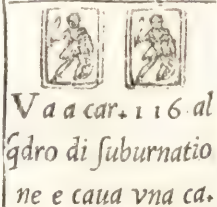 V a a car. 1 1 6 al
q̃dro di ſuburnatio
ne e caua vna ca.